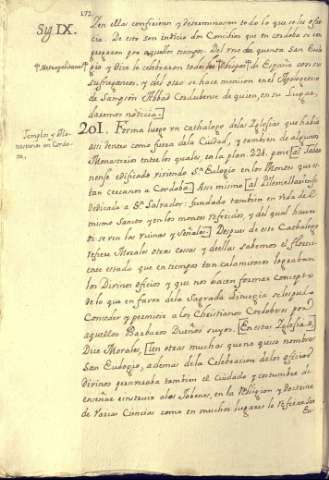 Sig IX.
En ellas conferieron y determinaron todo lo que se les ofre
cia. De esto son indicio dos Concilios que en cordoba se con
gregaron por aquellos tiempos. Del uno da quenta San Eulo
gio y Dize lo celebraron todos los Obispos de España con sus
Metropolitanos
sufraganeos, y del otro se hace mencion en el Apologetico
de Sanson Abbad Cordubense de quien, en su Lugar,
daremos noticia.
Templos y Mo
nasterios en Cordo
ba,
201. Forma luego un cathalogo de las Yglesias que havia
assi dentro como fuera de la Ciudad, y tambien de algunos
Monasterios entre los quales, en la plan. 228. pone al
nense edificado viviendo Sn. Eulogio en los Montes que es
tan cercanos a Cordoba. Assi mismo al
dedicado a Sn. Salvador: fundado tambien en vida del
mismo Santo y en los montes referidos, y del qual haun
oi se ven las ruinas y señales. Despues de este Cathalogo
refiere Morales otras cosas y de ellas sabemos el floreci
ente estado que en tiempos tan calamitosos lograban
los Divinos oficios y que nos hacen formar concepto
de lo que en favor de la Sagrada Liturgia se
Conceder y permitir a los Christianos Cordobeses por
aquellos Barbaros Dueños suyos. En estas Yglesias,
Dice Morales, i en otras muchas que no quiso nombrar
San Eulogio, ademas de la Celebracion de los oficios
divinos permaneaba tambien el Cuidado y costumbre de
enseñar e instruir a los Jobenes, en la Religion y Doctrina
de Varias Ciencias como en muchos lugares lo refiere San
Eu